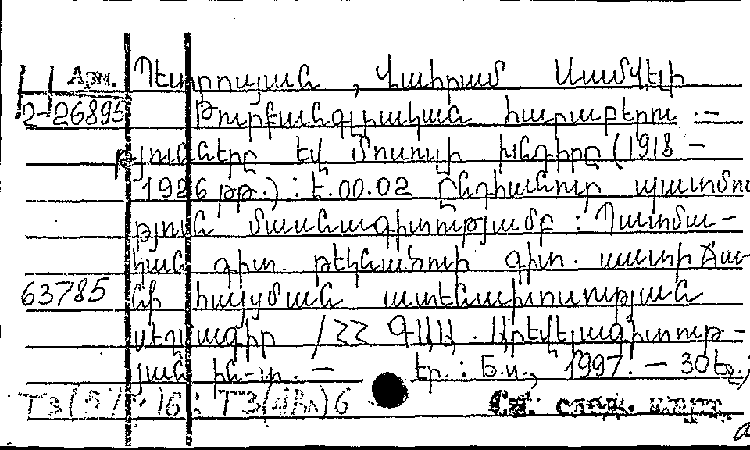 Арм. Պետրոսյան , Վահրամ Սամվելի
2-26895 Թուրքանգլիական հարաբերու-
թյունները եվ Մոսուլի խնդիրը (1918 -
1926 թթ.) : Է.00.02 Ընդհանուր պատմու
թյուն մասնագիտությամբ : Պատմա-
կան գիտ. թեկնածուի գիտ. աստիճա
63785 նի հայցման ատենախոսության
սեղմագիր /ՀՀ ԳԱԱ. Արևելագիտութ-
յան ին-տ. - Եր. : Բ.ի., 1997. - 30 էջ;
Т3( )6 ; Т3( )6 См. след. карт.